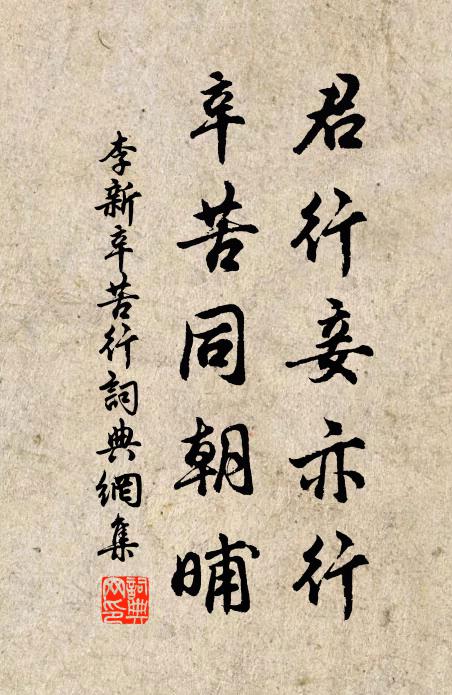 君行妾亦行
辛苦同朝晡
李新辛苦行詞典網集
詞典网印